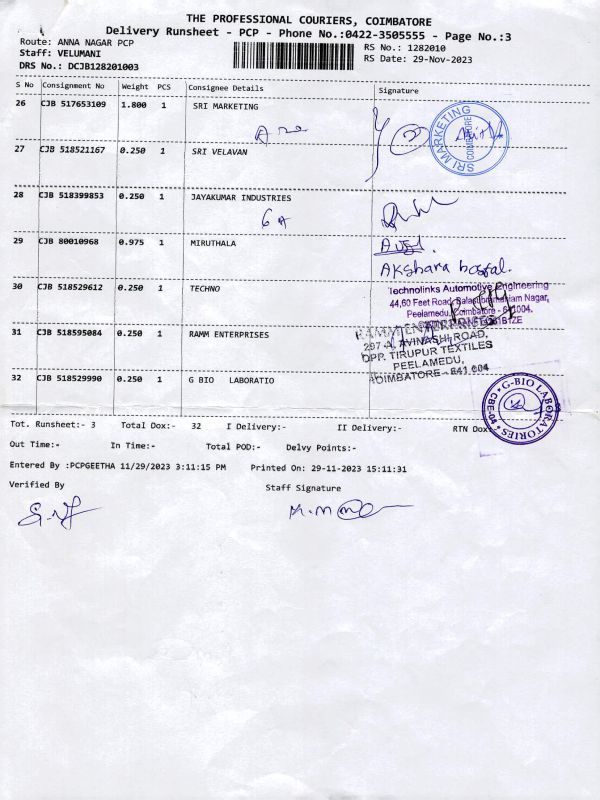 THE PROFESSIONAL COURIERS, COIMBATORE
Delivery Runsheet - PCP - Phone No.:0422-3505555 - Page No.:3
Route: ANNA NAGAR PCP
RS No.: 1282010
Staff: VELUMANI
RS Date: 29-Nov-2023
DRS No.: DCJB128201003
S No Consignment No Weight PCS Consignee Details Signature
26 CJB 517653109 1.800 1 SRI MARKETING
SRI MARKETING COIMBATORE
27 CJB 518521167 0.250 1 SRI VELAVAN
28 CJB 518399853 0.250 1 JAYAKUMAR INDUSTRIES
6A
29 CJB 80010968 0.975 1 MIRUTHALA
Akshara
30 CJB 518529612 0.250 1 TECHNO
Technolinks Automotive Engineering
44,60 Feet Road, Nagar,
Peelamedu, Coimbatore - 641004.
31 CJB 518595084 0.250 1 RAMM ENTERPRISES
RAMM ENTERPRISES
297-A, AVINASHI ROAD,
OPP. TIRUPUR TEXTILES
PEELAMEDU,
COIMBATORE - 641 004
32 CJB 518529990 0.250 1 G BIO LABORATIO
G-BIO LABORATORIES CBE-04
Tot. Runsheet:- 3 Total Dox:- 32 I Delivery:- II Delivery:- RTN Dox
Out Time:- In Time:- Total POD:- Delvy Points:-
Entered By :PCPGEETHA 11/29/2023 3:11:15 PM Printed On: 29-11-2023 15:11:31
Verified By Staff Signature